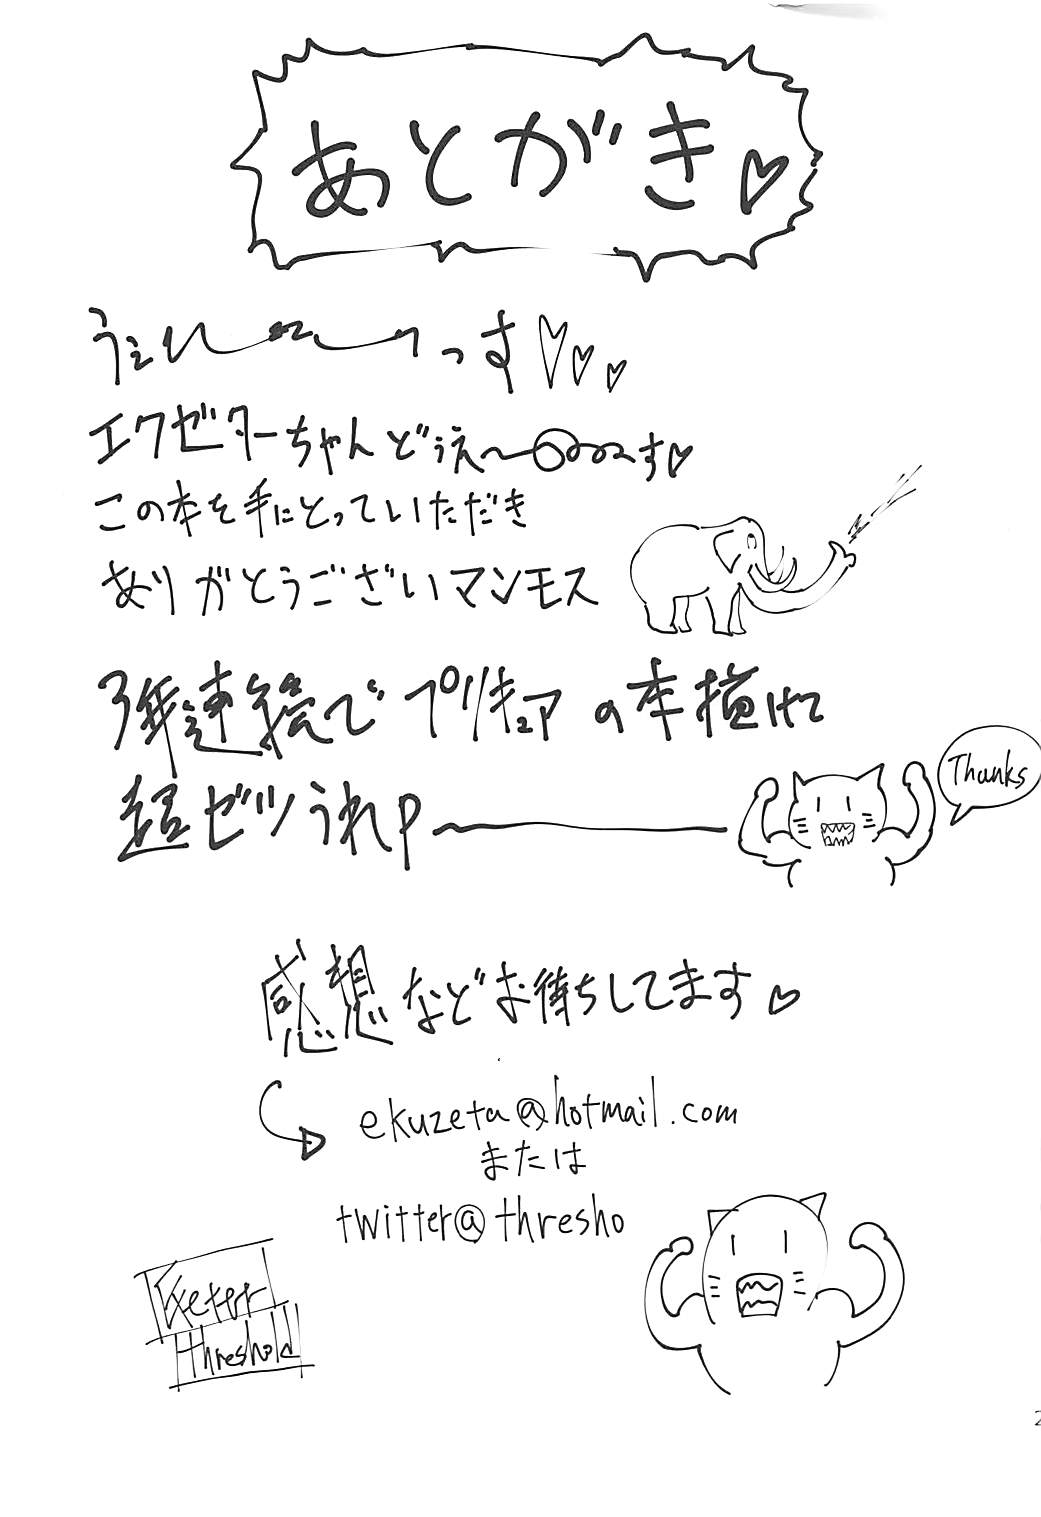 あとがき♡
うぇい〜〜〜っす♡♡♡
エクゼターちゃんどぅえ〜〜〜す♡
この本を手にとっていただき
ありがとうございマンモス
3年連続でプリキュアの本描けて
超ゼツうれP〜
Thanks
感想などお待ちしてます♡
ekuzeta@hotmail.com
または
twitter@thresho
Exeter
threshold